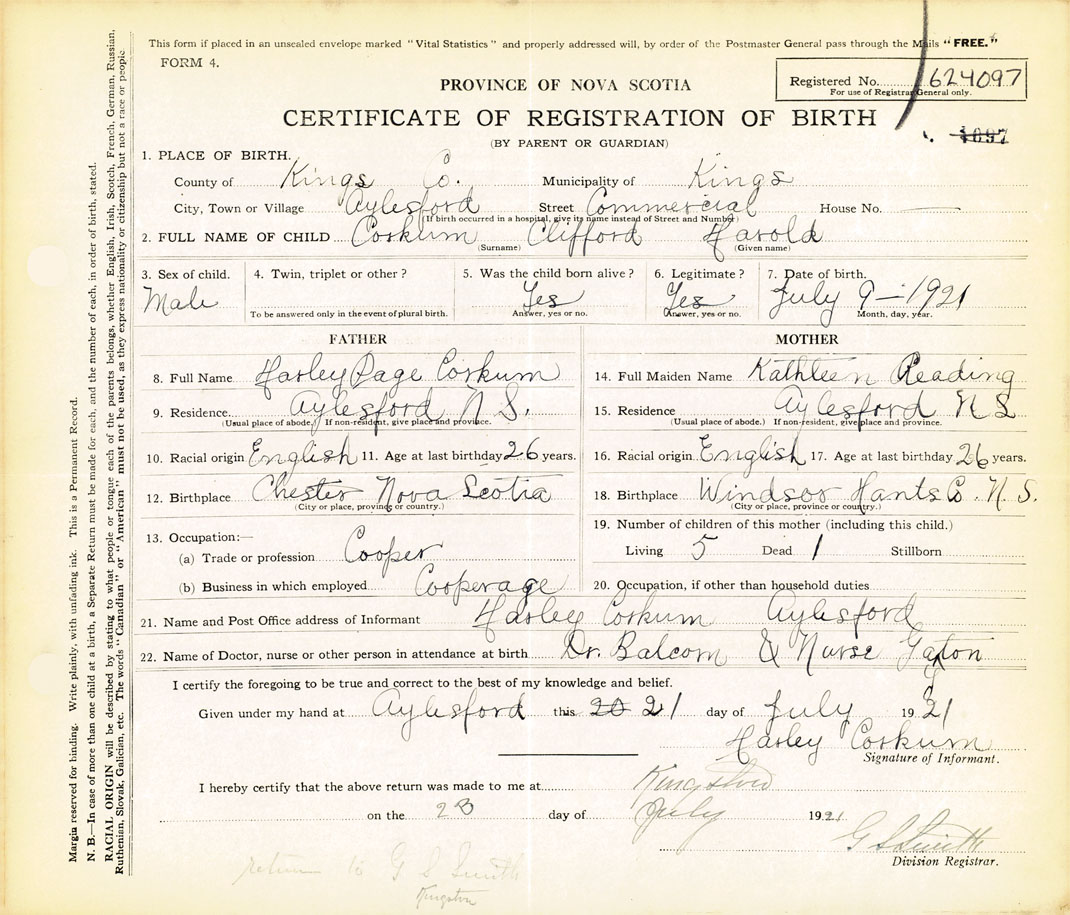 This form if placed in an unsealed envelope marked "Vital Statistics" and properly addressed will, by order of the Postmaster General pass through the Mails "FREE."
FORM 4.
Registered No. 624097
For use of Registrar General only.
PROVINCE OF NOVA SCOTIA
CERTIFICATE OF REGISTRATION OF BIRTH
(BY PARENT OR GUARDIAN)
1. PLACE OF BIRTH.
County of Kings Co. Municipality of Kings
City, Town or Village Aylesford Street Commercial House No.
(If birth occurred in a hospital, give its name instead of Street and Number)
2. FULL NAME OF CHILD Corkum Clifford Harold
(Surname) (Given name)
3. Sex of child. 4. Twin, triplet or other? 5. Was the child born alive? 6. Legitimate? 7. Date of birth.
Male Yes Yes July 9 - 1921
To be answered only in the event of plural birth. Answer, yes or no. Answer, yes or no. Month, day, year.
FATHER
8. Full Name Harley Page Corkum
9. Residence Aylesford N S.
(Usual place of abode.) If non-resident, give place and province.
10. Racial origin English 11. Age at last birthday 26 years.
12. Birthplace Chester Nova Scotia
(City or place, province or country.)
13. Occupation:—
(a) Trade or profession Cooper
(b) Business in which employed Cooperage
MOTHER
14. Full Maiden Name Kathleen Reading
15. Residence Aylesford N S
(Usual place of abode.) If non-resident, give place and province.
16. Racial origin English 17. Age at last birthday 26 years.
18. Birthplace Windsor Hants Co. N. S.
(City or place, province or country.)
19. Number of children of this mother (including this child.)
Living 5 Dead 1 Stillborn
20. Occupation, if other than household duties
21. Name and Post Office address of Informant Harley Corkum Aylesford
22. Name of Doctor, nurse or other person in attendance at birth Dr. Balcom & Nurse Gaton
I certify the foregoing to be true and correct to the best of my knowledge and belief.
Given under my hand at Aylesford this 20 21 day of July 1921
Harley Corkum
Signature of Informant.
I hereby certify that the above return was made to me at Kingston
on the 23 day of July 1921
G S Smith
Division Registrar.
return to G S Smith
Kingston
Margin reserved for binding. Write plainly, with unfading ink. This is a Permanent Record.
N. B.—In case of more than one child at a birth, a Separate Return must be made for each, and the number of each, in order of birth, stated.
RACIAL ORIGIN will be described by stating to what people or tongue each of the parents belongs, whether English, Irish, Scotch, French, German, Russian,
Ruthenian, Slovak, Galician, etc. The words "Canadian" or "American" must not be used, as they express nationality or citizenship but not a race or people.